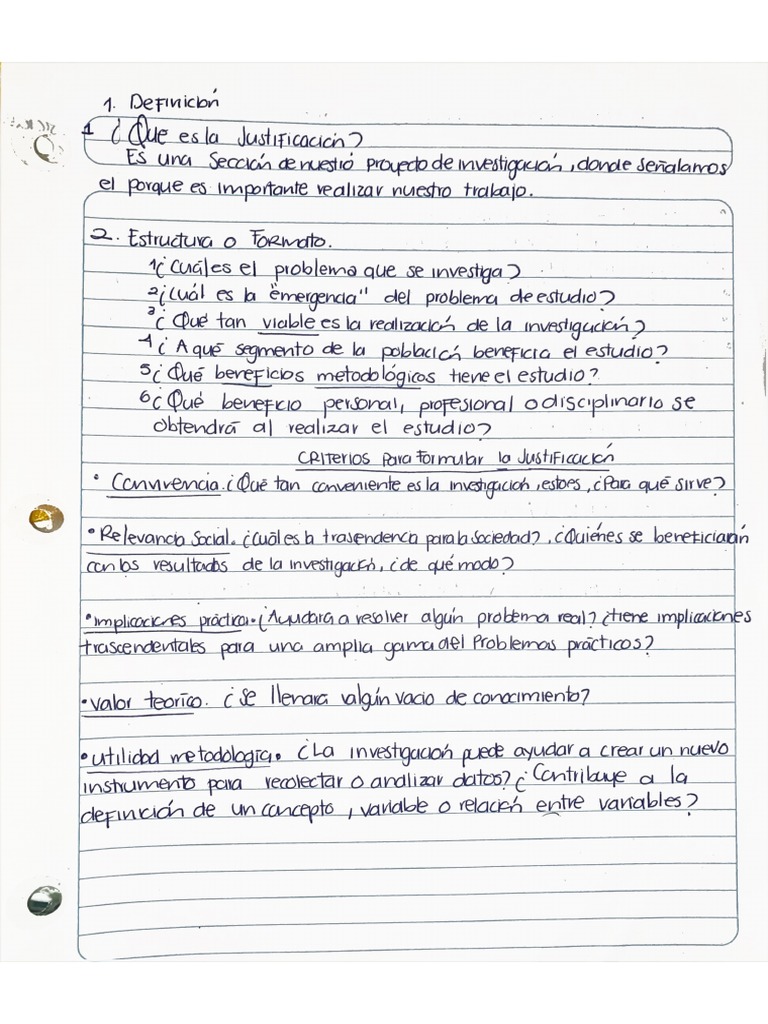 1. Definición
1 ¿Que es la Justificación?
Es una Sección de nuestro proyecto de investigación, donde señalamos
el porque es importante realizar nuestro trabajo.
2. Estructura o Formato.
1¿Cuáles el problema que se investiga?
2¿Cuál es la "emergencia" del problema de estudio?
3¿Qué tan viable es la realización de la investigación?
4¿A qué segmento de la población beneficia el estudio?
5¿Qué beneficios metodológicos tiene el estudio?
6¿Qué beneficio personal, profesional o disciplinario se
obtendrá al realizar el estudio?
CRITERIOS para formular la Justificación
• Convivencia. ¿Qué tan conveniente es la investigación, estoes, ¿Para qué sirve?
• Relevancia Social. ¿Cuáles la trasendencia para la Sociedad?, ¿Quiénes se beneficiarán
con los resultados de la investigación, ¿de qué modo?
• implicaciones práctica. ¿Ayudara a resolver algún problema real? ¿tiene implicaciones
trascendentales para una amplia gama del Problemas prácticos?
• valor teorico. ¿Se llenara valgún vacio de conocimiento?
• utilidad metodologia. ¿La investigación puede ayudar a crear un nuevo
instrumento para recolectar o analizar datos? ¿Contribuye a la
definición de un concepto, variable o relación entre variables?